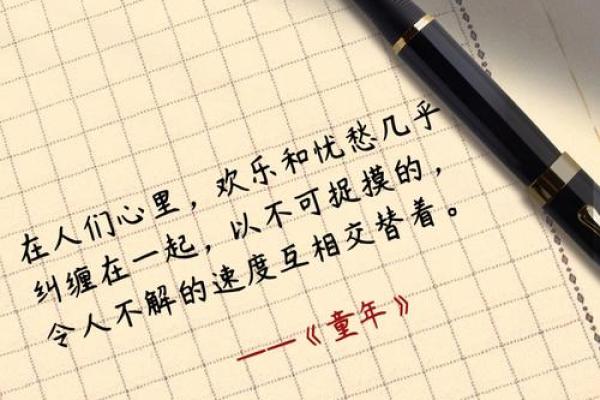 在人们心里，欢乐和忧愁几乎
纠缠在一起，以不可捉摸的，
令人不解的速度互相交替着。
——《童年》